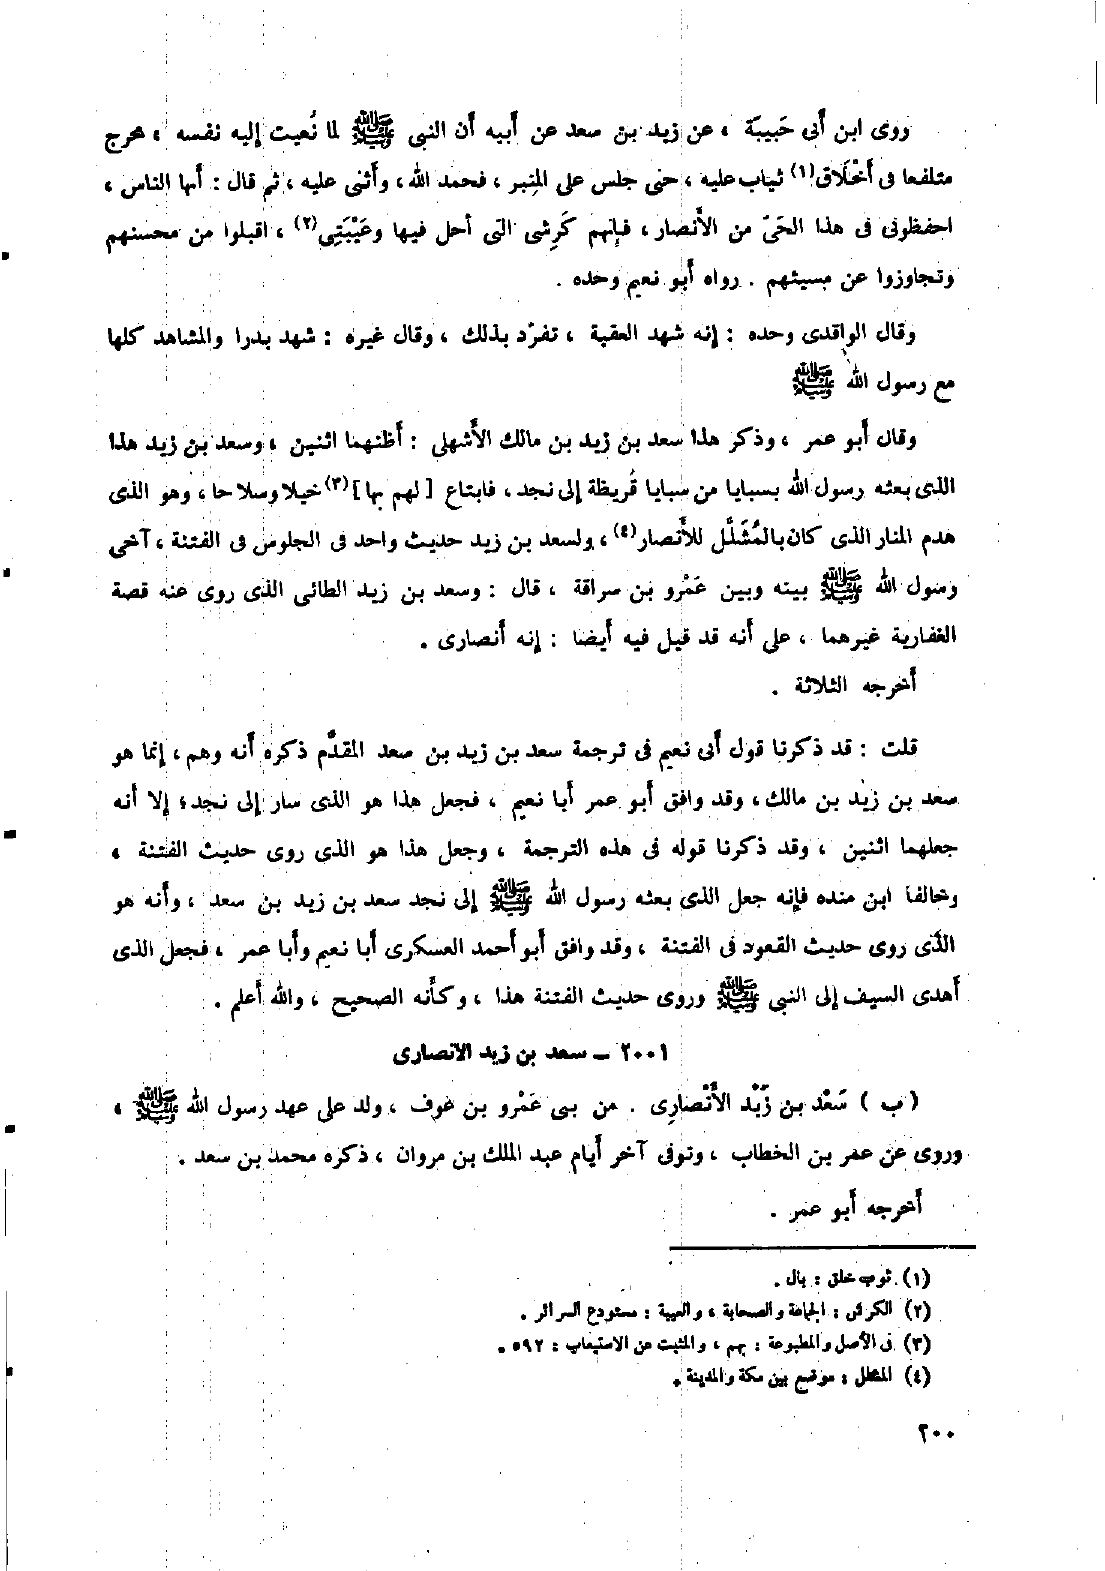 روى ابن أبى حَبيبة ، عن زيد بن سعد عن أبيه أن النبى ﷺ لما نُعيت إليه نفسه ، خرج
متلفعا فى أخْلَاق(١) ثياب عليه ، حتى جلس على المنِبر ، فحمد الله ، وأثنى عليه ، ثم قال : أيها الناس ،
احفظونى فى هذا الحَىّ من الأنصار ، فإنهم كَرِشى التى أحل فيها وعَيْبَتِى(٢) ، اقبلوا من محسنهم
وتجاوزوا عن مسيئهم . رواه أبو نعيم وحده .
وقال الواقدى وحده : إنه شهد العقبة ، تفرّد بذلك ، وقال غيره : شهد بدرا والمشاهد كلها
مع رسول الله ﷺ
وقال أبو عمر ، وذكر هذا سعد بن زيد بن مالك الأشهلى : أظنهما اثنين ، وسعد بن زيد هذا
الذى بعثه رسول الله بسبايا من سبايا قُريظة إلى نجد ، فابتاع [ لهم بها ](٣) خيلا وسلاحا ، وهو الذى
هدم المنار الذى كان بالمُشَلَّل للأنصار(٤) ، ولسعد بن زيد حديث واحد فى الجلوس فى الفتنة ، آخى
رسول الله ﷺ بينه وبين عَمْرو بن سراقة ، قال : وسعد بن زيد الطائى الذى روى عنه قصة
الغفارية غيرهما ، على أنه قد قيل فيه أيضا : إنه أنصارى .
أخرجه الثلاثة .
قلت : قد ذكرنا قول أبى نعيم فى ترجمة سعد بن زيد بن سعد المقدَّم ذكره أنه وهم ، إنما هو
سعد بن زيد بن مالك ، وقد وافق أبو عمر أبا نعيم ، فجعل هذا هو الذى سار إلى نجد ؛ إلا أنه
جعلهما اثنين ، وقد ذكرنا قوله فى هذه الترجمة ، وجعل هذا هو الذى روى حديث الفتنة ،
وخالفا ابن منده فإنه جعل الذى بعثه رسول الله ﷺ إلى نجد سعد بن زيد بن سعد ، وأنه هو
الذى روى حديث القعود فى الفتنة ، وقد وافق أبو أحمد العسكرى أبا نعيم وأبا عمر ، فجعل الذى
أهدى السيف إلى النبى ﷺ وروى حديث الفتنة هذا ، وكأنه الصحيح ، والله أعلم .
٢٠٠١ – سعد بن زيد الانصارى
( ب ) سَعْد بن زَيْد الأنْصارِى . من بنى عَمْرو بن عَوف ، ولد على عهد رسول الله ﷺ ،
وروى عن عمر بن الخطاب ، وتوفى آخر أيام عبد الملك بن مروان ، ذكره محمد بن سعد .
أخرجه أبو عمر .
(١) ثوب خلق : بال .
(٢) الكرش : الجماعة والصحابة ، والعيبة : مستودع السرائر .
(٣) فى الأصل والمطبوعة : بهم ، والمثبت عن الاستيعاب : ٥٩٢ .
(٤) المشلل : موضع بين مكة والمدينة .
٢٠٠